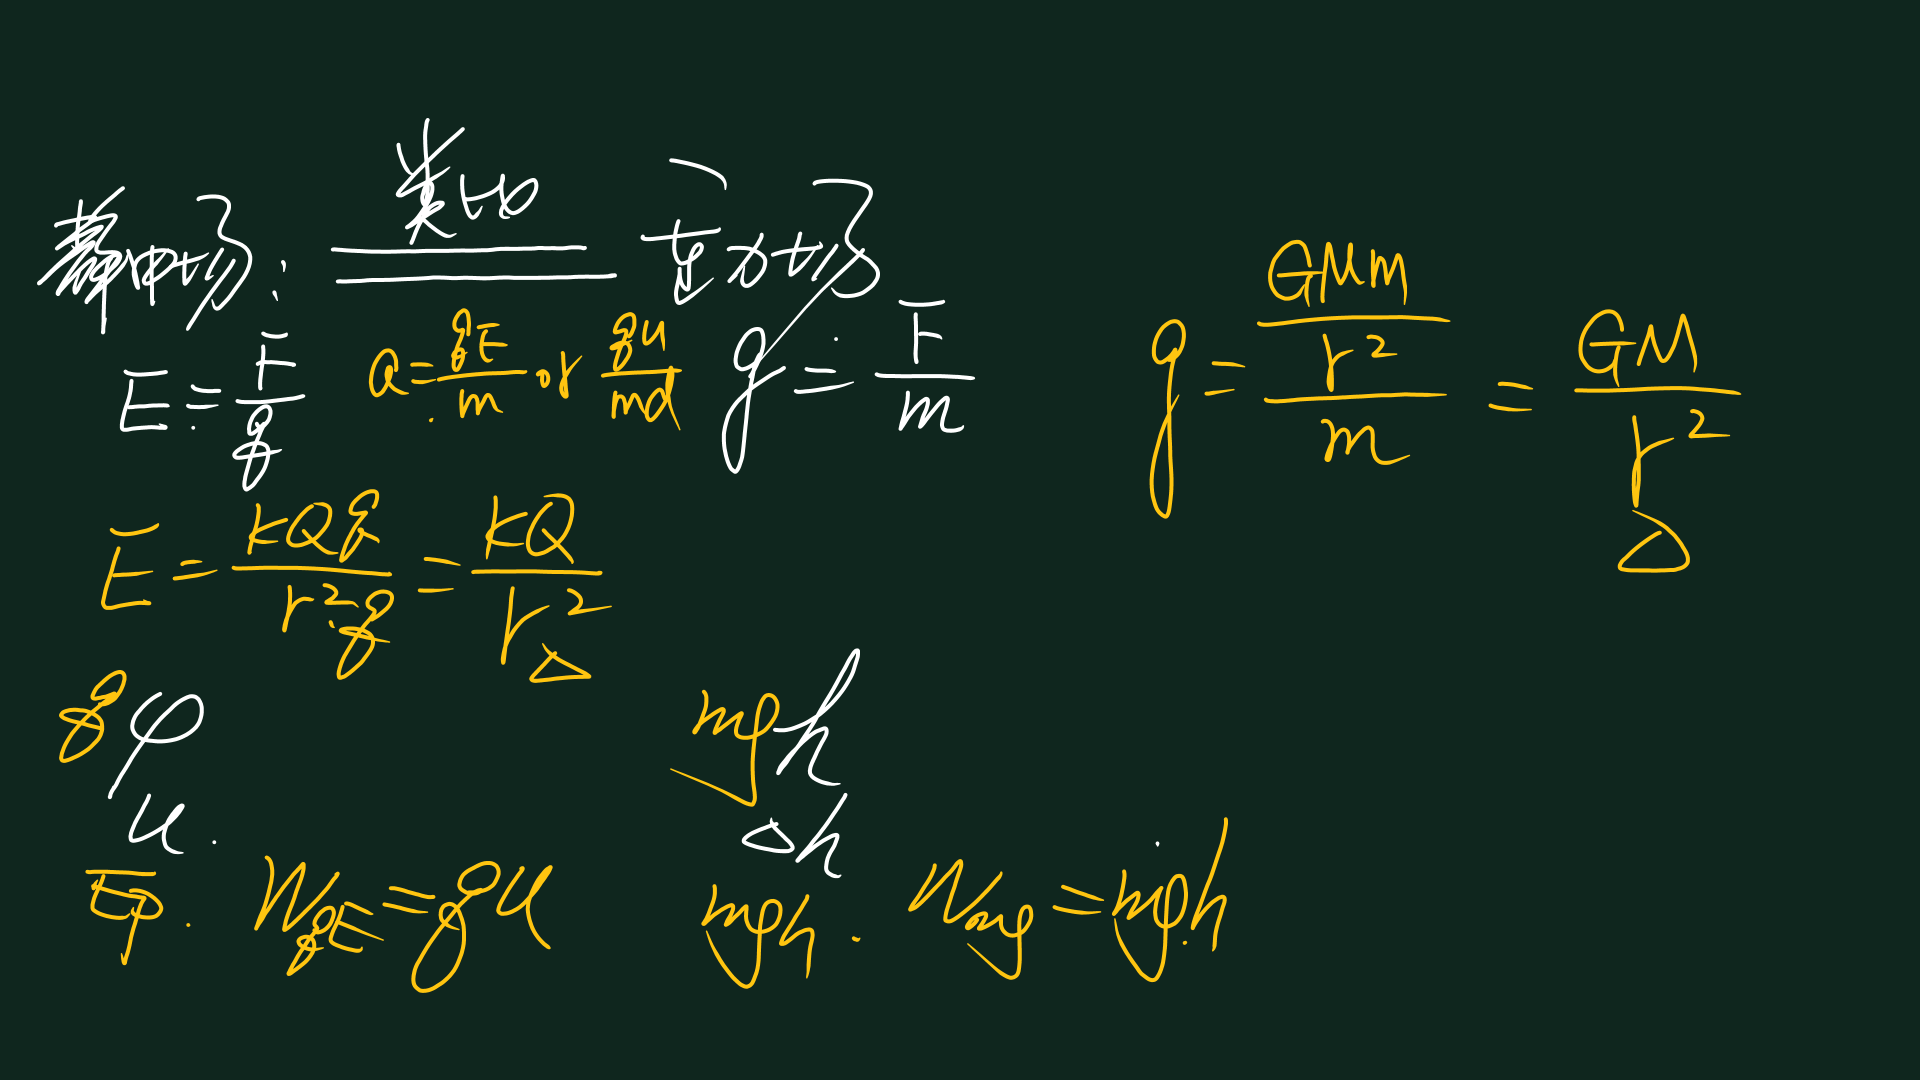 静电场: 类比 重力场
E = F/q a = qE/m or qU/md g = F/m g = (GMm/r²)/m = GM/r²
E = kQq/r²q = kQ/r²
qφ mgh
U. Δh
Ep. WqE = qU mgh. Wmg = mgh